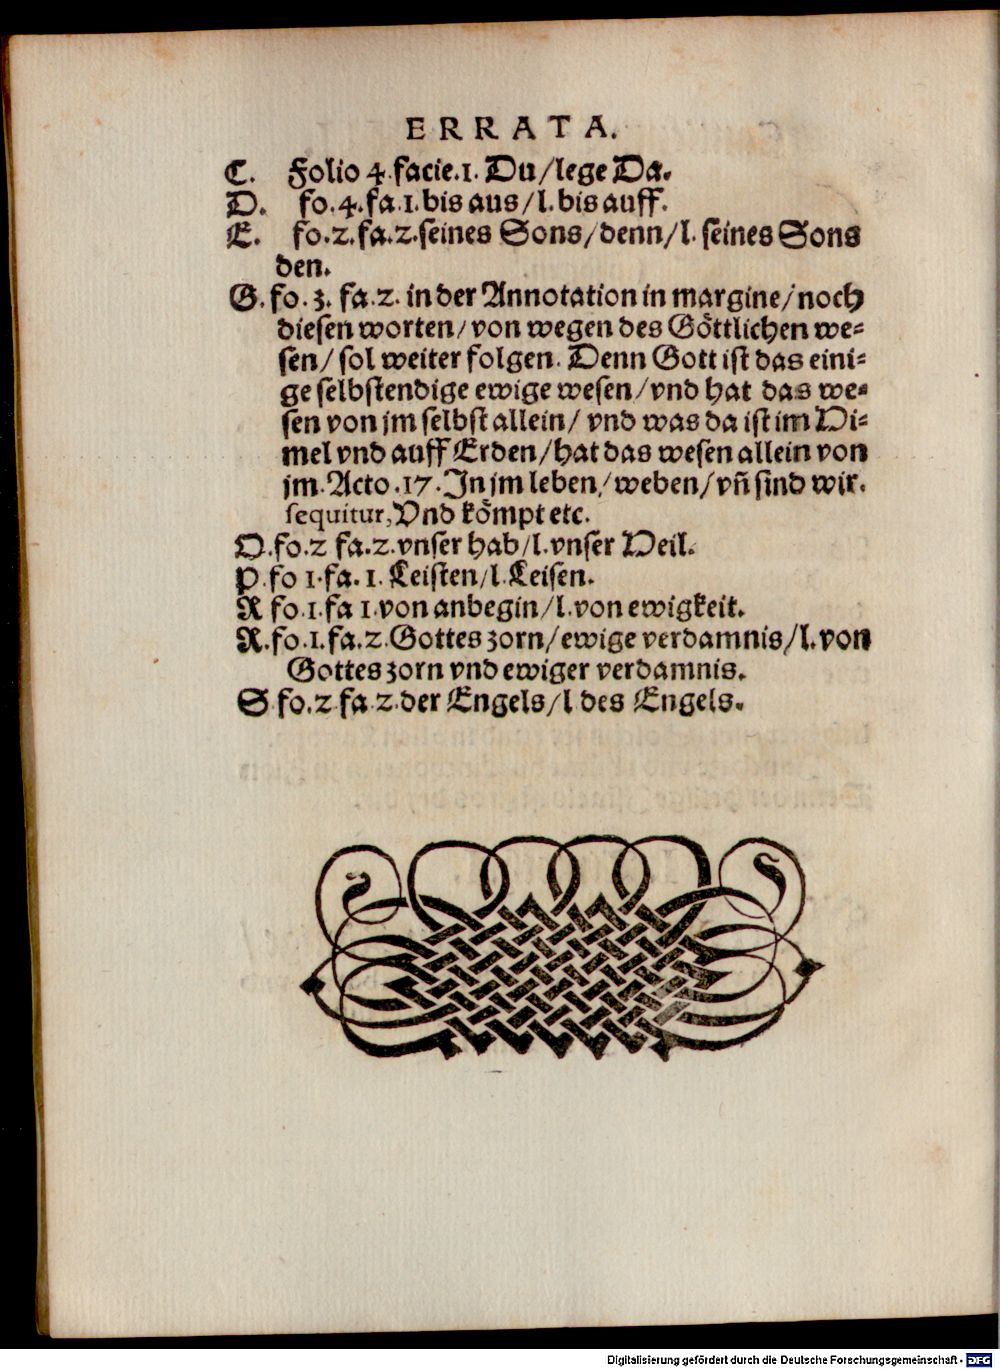 ERRATA.
C. Folio 4. facie.1. Du/lege Da.
D. fo.4.fa.1.bis aus/l.bis auff.
E. fo.2.fa.2.seines Sons/denn/l. seines Sons
den.
G.fo.3. fa.2. in der Annotation in margine/noch
diesen worten/von wegen des Göttlichen we⸗
sen/sol weiter folgen. Denn Gott ist das eini⸗
ge selbstendige ewige wesen/vnd hat das we⸗
sen von jm selbst allein/ vnd was da ist im Hi⸗
mel vnd auff Erden/hat das wesen allein von
jm. Acto.17. In jm leben/weben/vñ sind wir.
sequitur, Vnd kömpt etc.
O.fo.2 fa.2.vnser hab/l.vnser Heil.
P.fo 1.fa.1. Leisten/l.Leisen.
R fo.1.fa 1.von anbegin/l.von ewigkeit.
R.fo.1.fa.2.Gottes zorn/ewige verdamnis/l.von
Gottes zorn vnd ewiger verdamnis.
S fo.2 fa.2.der Engels/l des Engels.
Digitalisierung gefördert durch die Deutsche Forschungsgemeinschaft - DFG